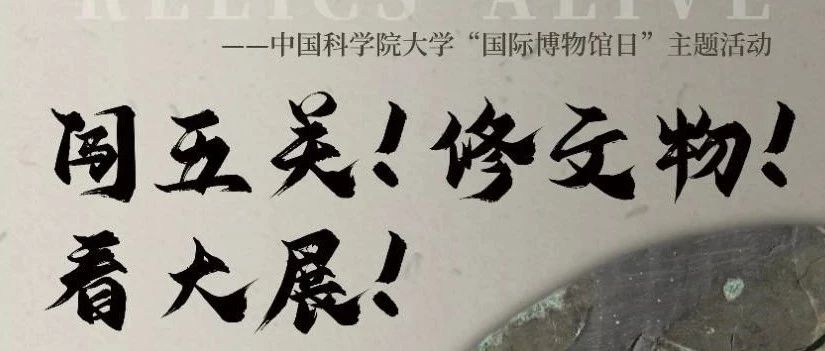 RELICS ALIVE
——中国科学院大学“国际博物馆日”主题活动
闯五关！修文物！
看大展！